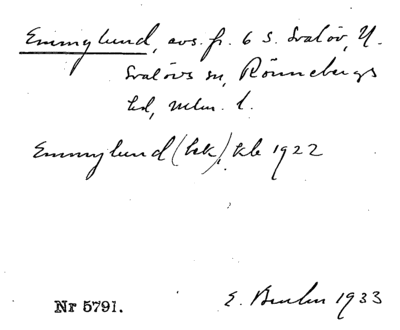 Emmylund, avs. fr. 6 s. Svalöv, N.
Svalövs sn, Rönnebergs
hd, Mlm. l.
Emmylund (hk), kb 1922
Nr 5791.
E. 1933